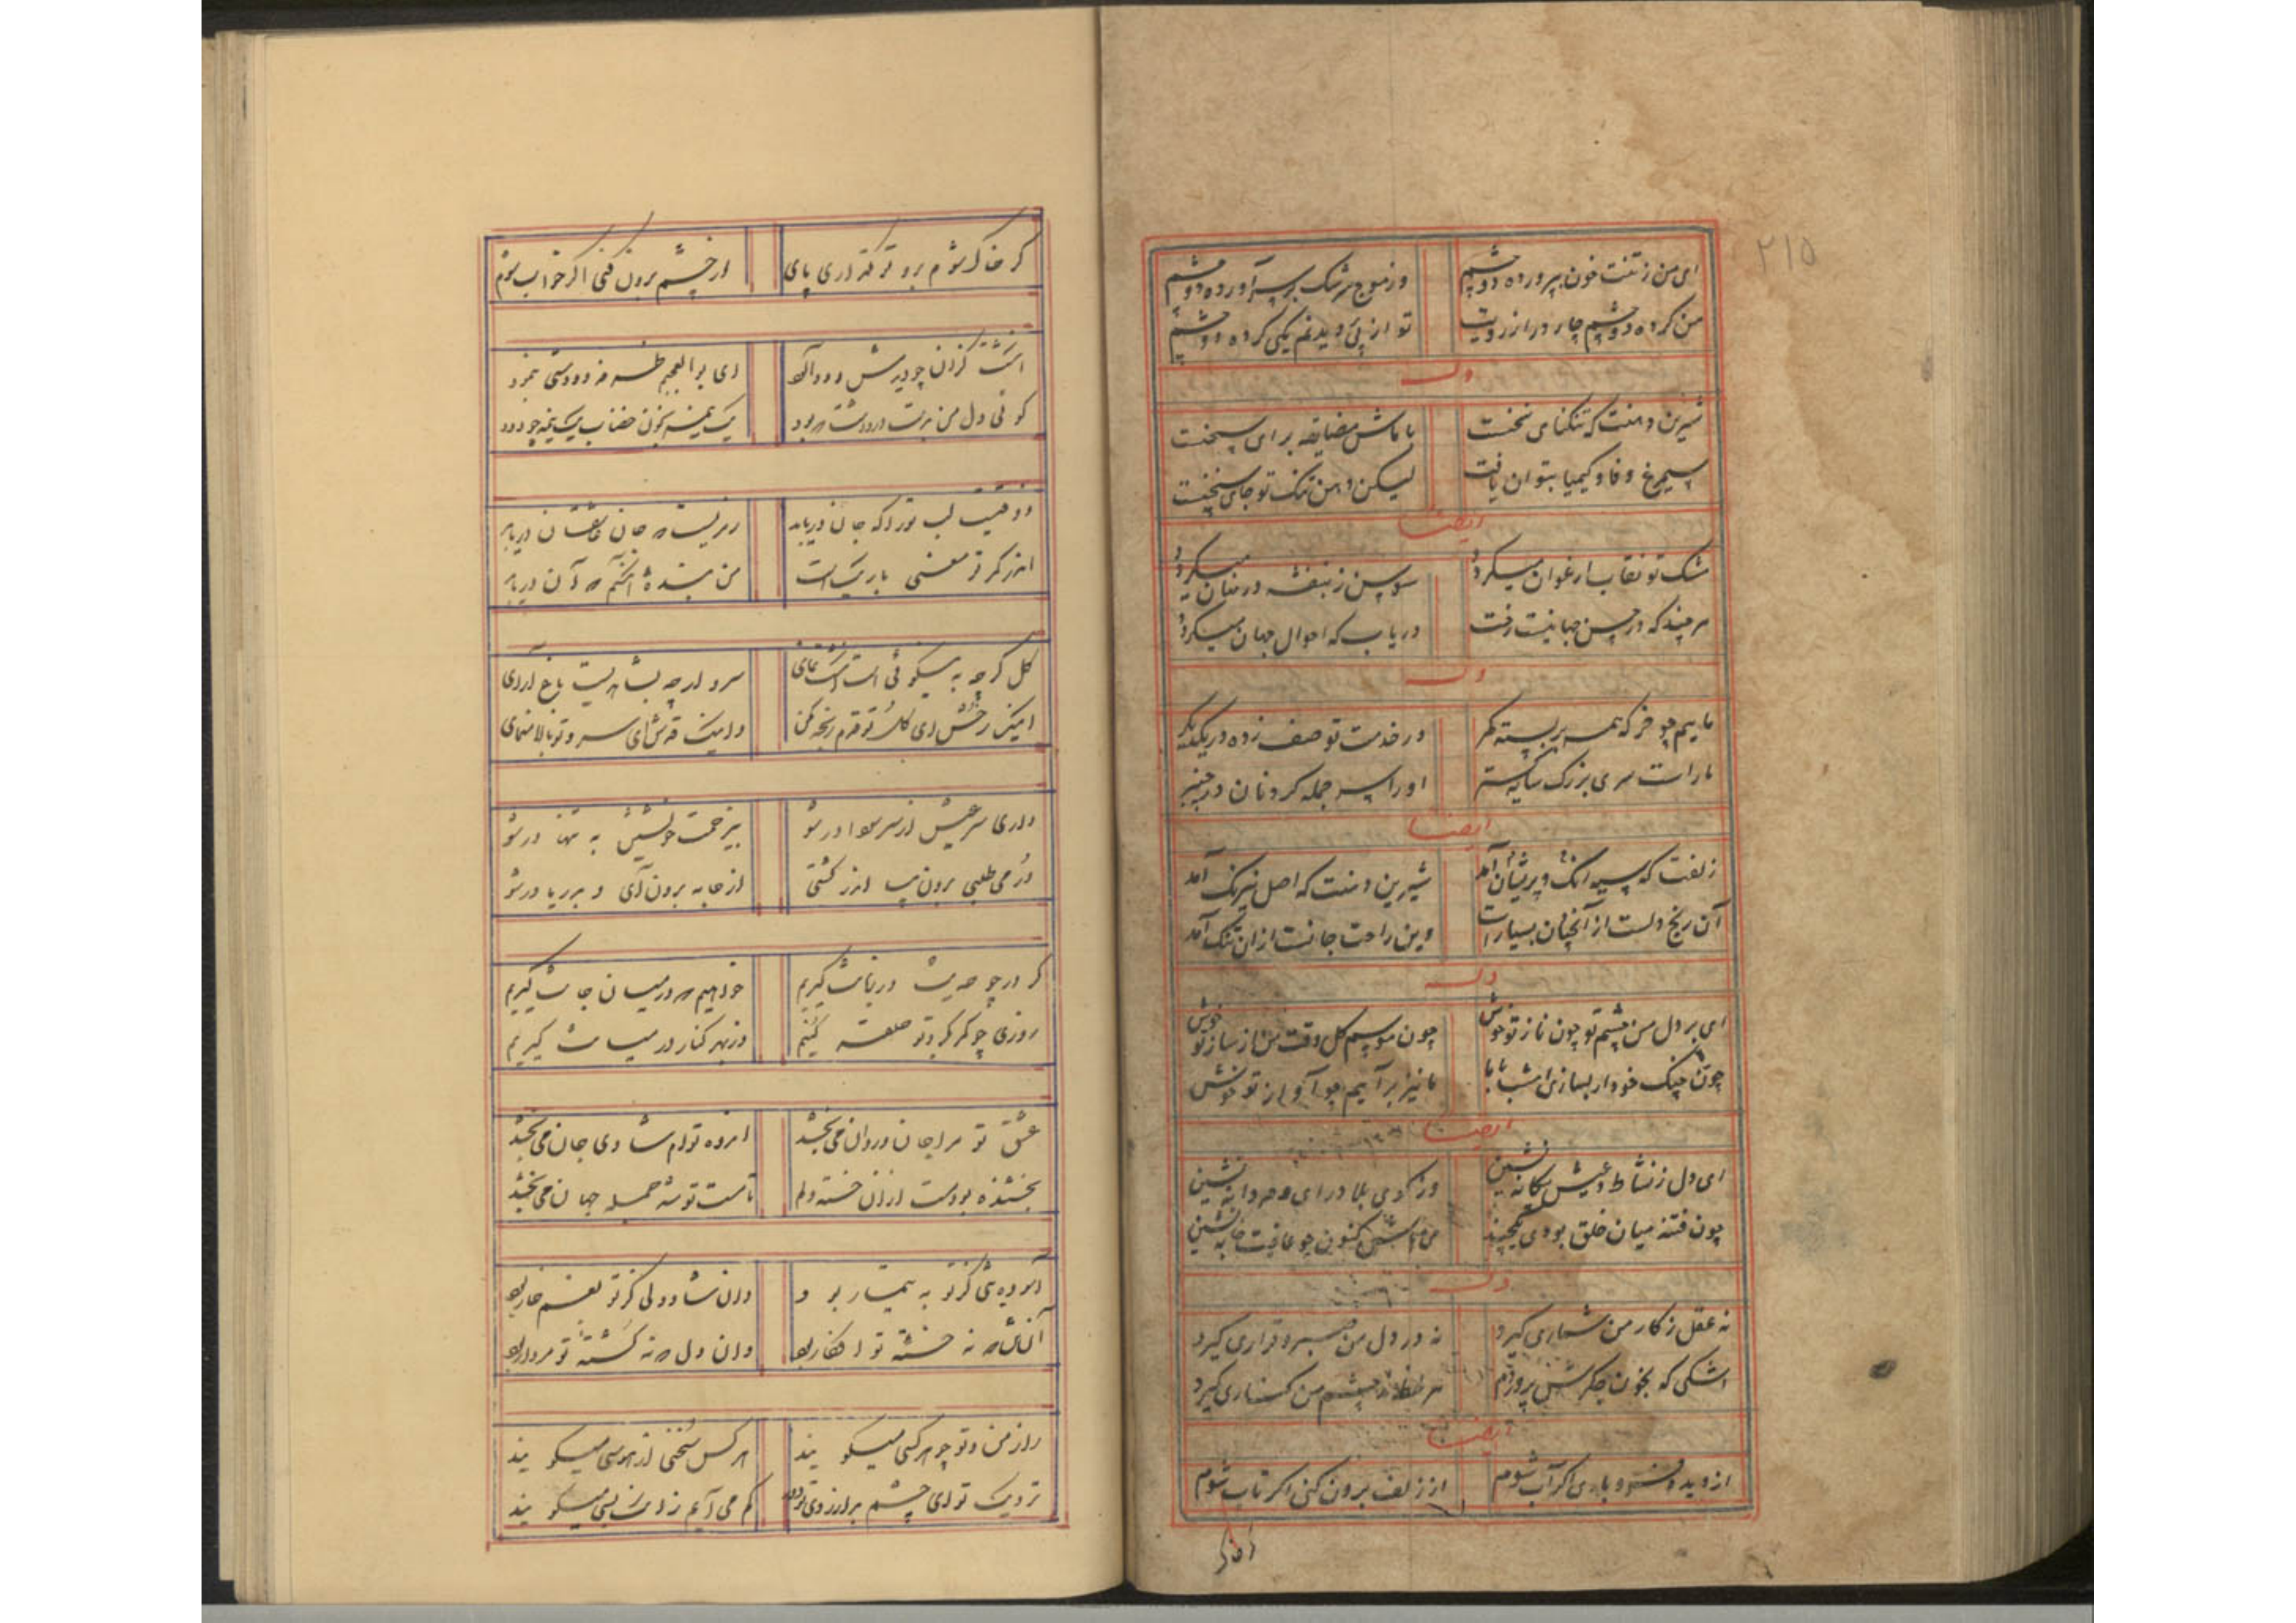 ۲۱۵
ای من ز تنت خون بپرورده دو چشم وز موج سرشک بر سر آورده دو چشم
من کرده دو چشم چار در از رویت تو از پی دیدنم یکی کرده دو چشم
وله
شیرین دهنت که تنگنای سخنست با ماش مضایقه برای سخنست
سیمرغ وفا و کیمیا بتوان یافت لیکن دهن تنگ تو جای سخنست
ایضا
مشک تو نقاب ارغوان میگردد سوسن ز بنفشه در میان میگردد
هر چند که در حسن جهانیت رفت دریاب که احوال جهان میگردد
وله
ماییم چو خر که همه بربسته کمر در خدمت تو صف زده در یکدیگر
ما راست سری بزرگ سایه گستر او را سر جمله کردنان در چنبر
ایضا
زلفت که سیه و پریشان آمد شیرین دهنت که اصل نیرنگ آمد
آن رنج دلست از آنچنان بسیارست وین راحت جانست از آن تنگ آمد
وله
ای بر دل من چشم تو چون ناز تو خوش چون موسم گل وقت من از ساز تو خوش
چون چنگ خود ار بسازی امشب با ما ما نیز برآییم چو آواز تو خوش
ایضا
ای دل ز نشاط و عیش بیگانه نشین در بلا درای و مردانه نشین
چون فتنه میان خلق بودی یکچند کنون چو عافیت خانه نشین
وله
نه عقل ز کار من شماری گیرد نه در دل من صبر و قراری گیرد
اشکی که بخون جگرش پروردم هر لحظه ز چشم من کناری گیرد
ایضا
از دیده باری اگر آب شوم از زلف برون کنی اگر تاب شوم
گر خاک
گر خاک شوم برو تو نگذاری پای از چشم برون کنی اگر خواب شوم
انگشت گزان چو دیدمش دود آلود ای بوالعجبی طرفه دو دستی بنمود
گوئی دل من بدست در داشت ربود یک نیمه بخون خضاب یک نیمه چو دود
ذوقیست لب تو را که جان دریابد رمزیست که جان عاشقان دریابد
اندر کمر تو معنی باریکست من بنده آنکسم که آن دریابد
گل گرچه به نیکوئی است انگشت نمای سرو ارچه بشاهدیست باغ آرای
اینک رخش ای گل تو قدم رنجه مکن و اینک قدش ای سرو تو بالا منمای
داری سر عشق از سر سودا در شو بی زحمت خویشتن به تنها در شو
در می طلبی برون میا از کشتی از جامه برون آی و به دریا در شو
گر در چو حدیث در زبانت گیریم خواهیم که در میان جانت گیریم
روزی چو کمر گرد تو حلقه کنیم وز بهر کنار در میانت گیریم
عشق تو مرا جان و روان می بخشد اندوه توام شادی جان می بخشد
بخشنده بود مست از آن خسته دلم تا مست تو شد جمله جهان می بخشد
آن دیده کز تو به تیمار بود وان شاد دلی کز تو بغم خوار بود
آن جان که نه خسته تو افگار بود وان دل که نه کشته تو مردار بود
راز من و تو چو هر کسی میگویند هر کس سخنی از هوسی میگویند
نزدیک تو ای چشم کم می آیم زانک بسی میگویند